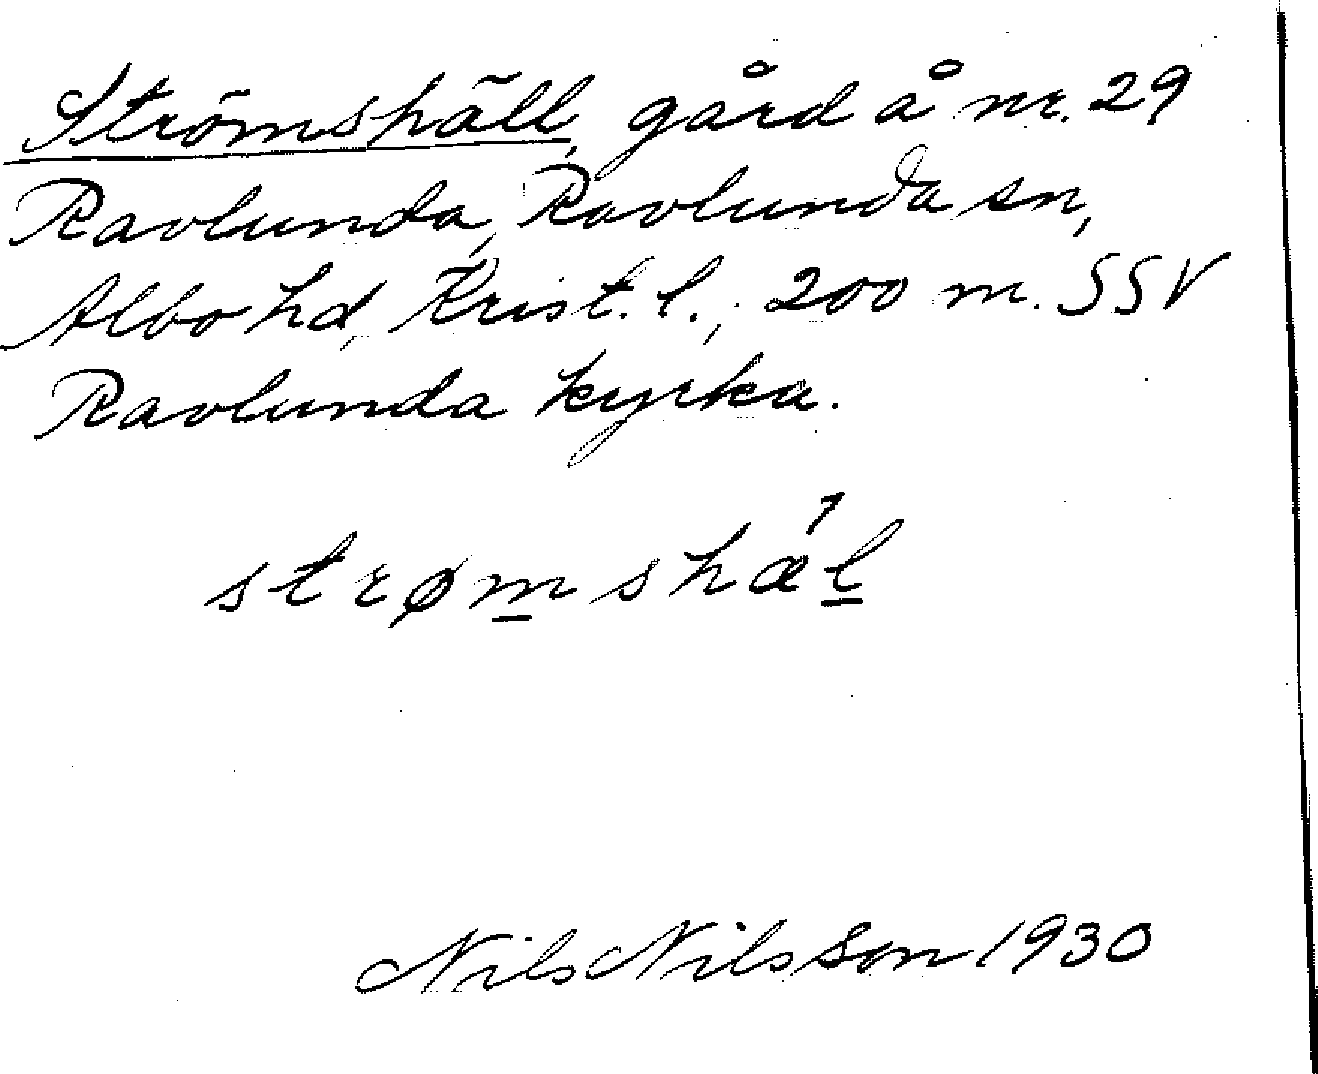 Strömshäll, gård å nr. 29
Ravlunda, Ravlunda sn,
Albo hd, Krist. l., 200 m. SSV
Ravlunda kyrka.
strøm̲shæ´l̲
Nils Nilsson 1930